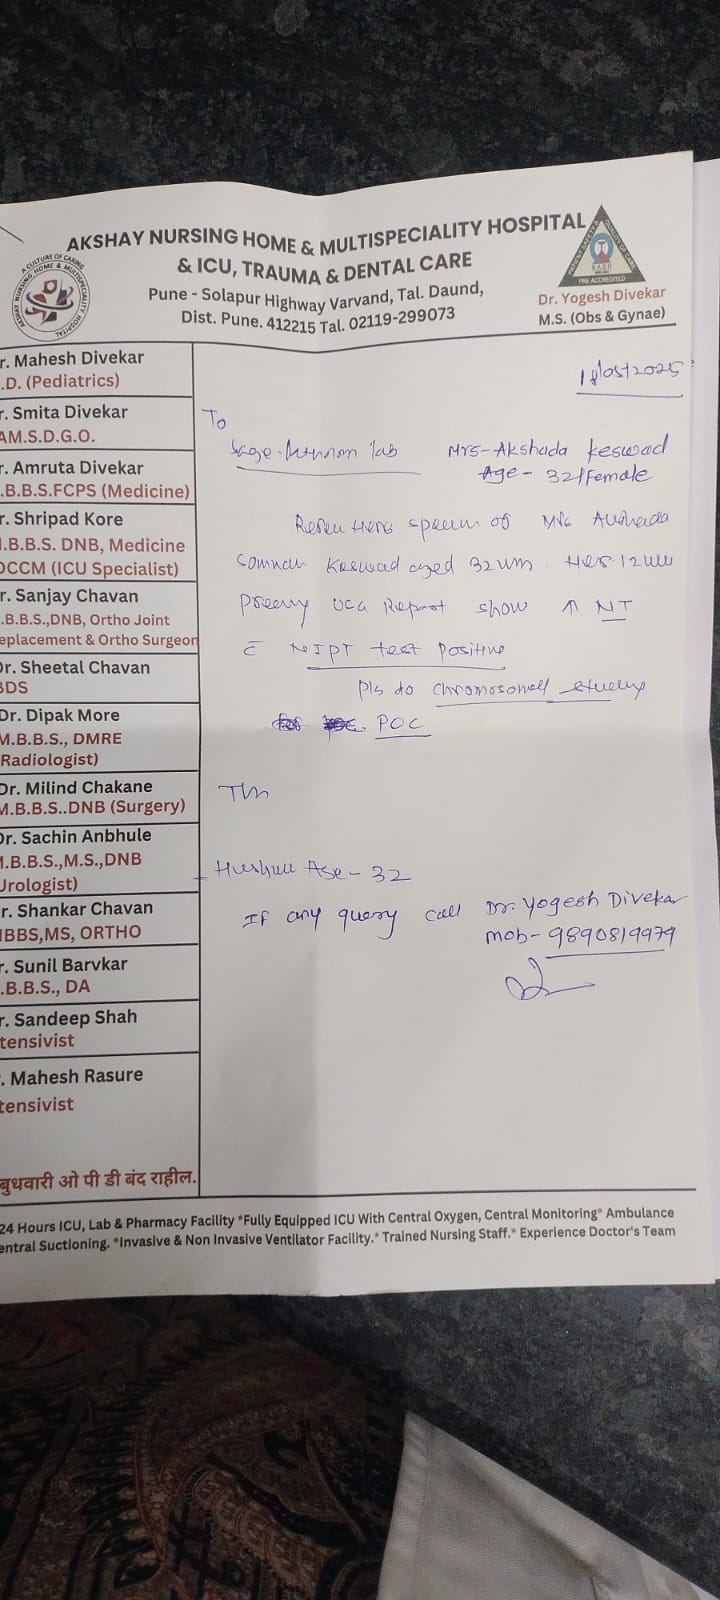 AKSHAY NURSING HOME & MULTISPECIALITY HOSPITAL
& ICU, TRAUMA & DENTAL CARE
Pune - Solapur Highway Varvand, Tal. Daund,
Dist. Pune. 412215 Tal. 02119-299073
A CULTURE OF CARING
AKSHAY NURSING HOME & MULTISPECIALITY HOSPITAL
PATIENT SAFETY & QUALITY OF CARE
NABH
PRE ACCREDITED
Dr. Yogesh Divekar
M.S. (Obs & Gynae)
r. Mahesh Divekar
.D. (Pediatrics)
r. Smita Divekar
AM.S.D.G.O.
r. Amruta Divekar
.B.B.S.FCPS (Medicine)
r. Shripad Kore
I.B.B.S. DNB, Medicine
OCCM (ICU Specialist)
r. Sanjay Chavan
.B.B.S.,DNB, Ortho Joint
eplacement & Ortho Surgeon
Dr. Sheetal Chavan
BDS
Dr. Dipak More
M.B.B.S., DMRE
Radiologist)
Dr. Milind Chakane
M.B.B.S..DNB (Surgery)
Dr. Sachin Anbhule
M.B.B.S.,M.S.,DNB
Urologist)
r. Shankar Chavan
IBBS,MS, ORTHO
r. Sunil Barvkar
.B.B.S., DA
r. Sandeep Shah
tensivist
. Mahesh Rasure
tensivist
बुधवारी ओ पी डी बंद राहील.
18/05/2025
To
lab
Mrs- Akshada Keswad
Age - 32/Female
of Mrs
Keswad aged 32 Her 12
Report show ↑ NT
c̄ NIPT test Positive
Pls do chromosomell
POC
Age - 32
If any query call Dr. Yogesh Divekar
mob- 9890819979
24 Hours ICU, Lab & Pharmacy Facility *Fully Equipped ICU With Central Oxygen, Central Monitoring* Ambulance
entral Suctioning. *Invasive & Non Invasive Ventilator Facility.* Trained Nursing Staff.* Experience Doctor's Team